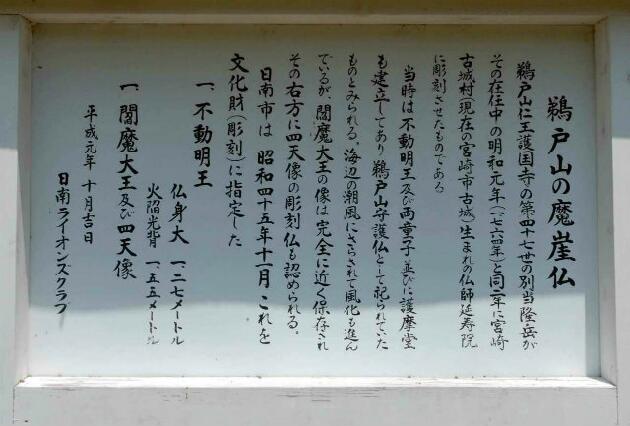 鵜戸山の魔崖仏
鵜戸山仁王護国寺の第四十七世の別当隆岳が
その在任中の明和元年(一七六四年)と同二年に宮崎
古城村(現在の宮崎市古城)生まれの仏師延寿院
に彫刻させたものである
当時は不動明王及び両童子並びに護摩堂
も建立してあり鵜戸山守護仏として祀られていた
ものとみられる。海辺の潮風にさらされて風化も進ん
でいるが、閻魔大王の像は完全に近く保存され
その右方に四天像の彫刻仏も認められる。
日南市は昭和四十五年十一月これを
文化財(彫刻)に指定した
一、不動明王
仏身大 一、二七メートル
火焔光背 一、五五メートル
一、閻魔大王及び四天像
平成元年十月吉日
日南ライオンズクラブ